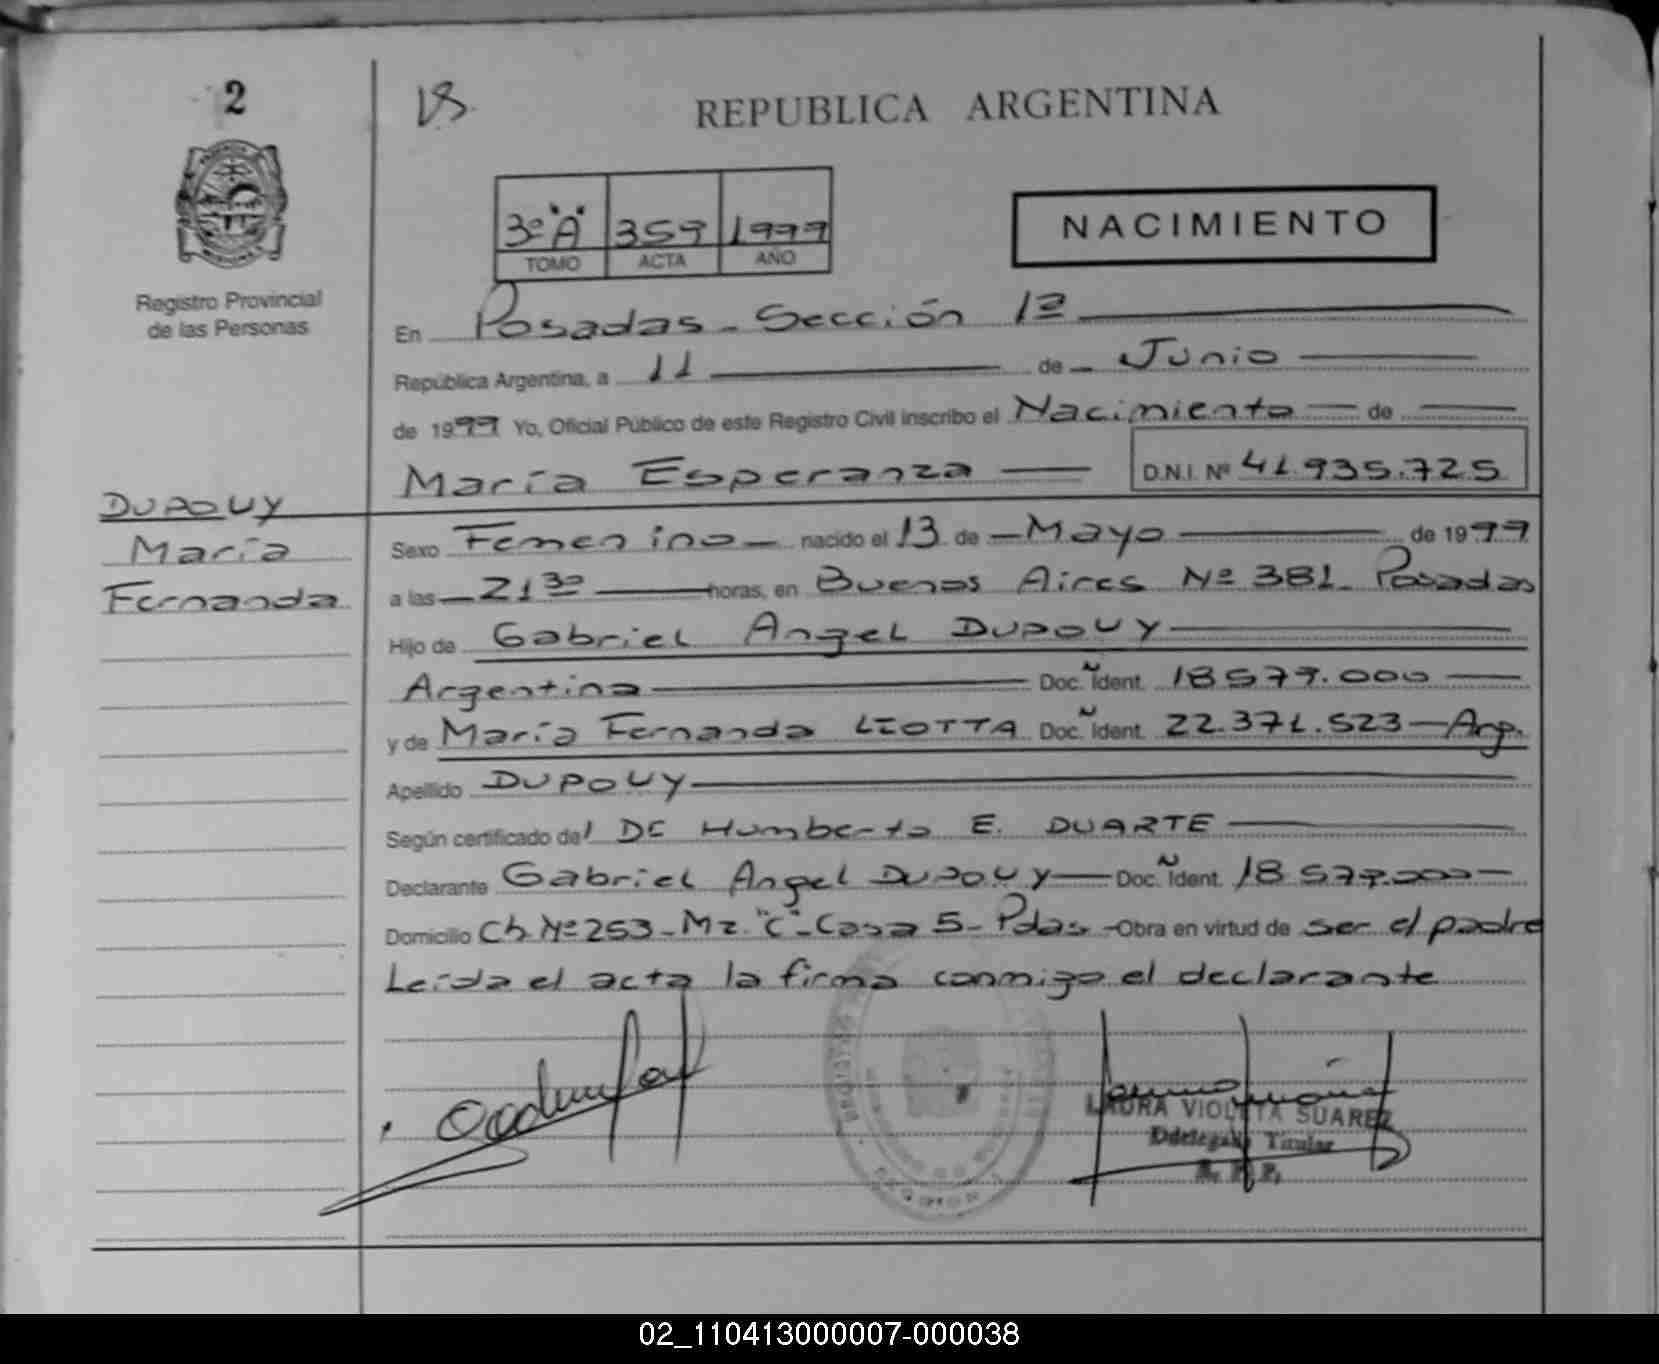 2
REPUBLICA ARGENTINA
3º "A" 359 1999
TOMO ACTA AÑO
NACIMIENTO
Registro Provincial
de las Personas
En Posadas - Sección 1ª
República Argentina, a 11 de Junio
de 1999 Yo, Oficial Público de este Registro Civil inscribo el Nacimiento de
María Esperanza D.N.I. Nº 41.935.725
DUPOUY
María
Fernanda
Sexo Femenino nacido el 13 de Mayo de 1999
a las 21 30 horas, en Buenos Aires Nº 381 - Posadas
Hijo de Gabriel Angel DUPOUY
Argentino Doc. Ident. 18.579.000
y de María Fernanda LIOTTA Doc. Ident. 22.371.523 - Arg.
Apellido DUPOUY
Según certificado del Dr Humberto E. DUARTE
Declarante Gabriel Angel DUPOUY Doc. Ident. 18.579.000
Domicilio Ch Nº 253 - Mz. "C" - Casa 5 - Pdas - Obra en virtud de ser el padre
Leída el acta la firma conmigo el declarante
LAURA VIOLETA SUAREZ
Titular
02_110413000007-000038